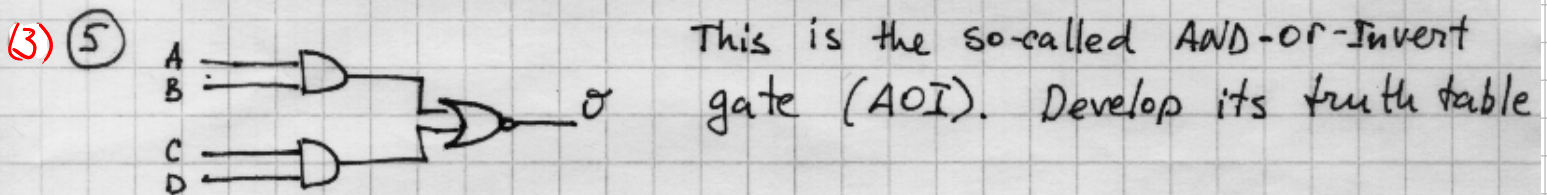 (3) 5 A This is the so-called AND-Or-Invert
B
σ gate (AOI). Develop its truth table
C
D